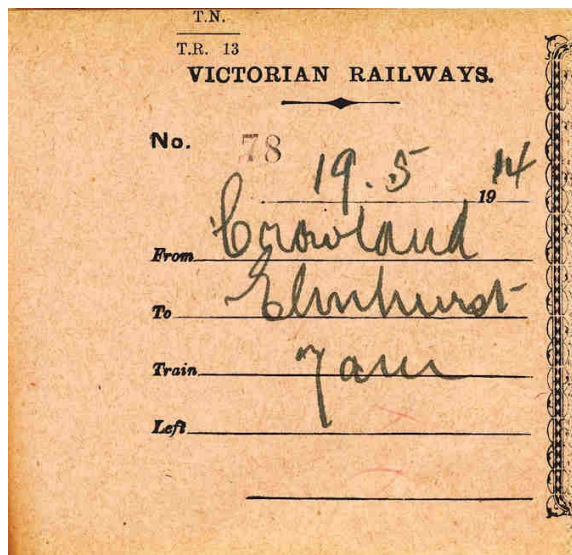 T.N.
T.R. 13
VICTORIAN RAILWAYS.
No. 78
19.5 1914
From Crowland
To Elmhurst
Train 7am
Left